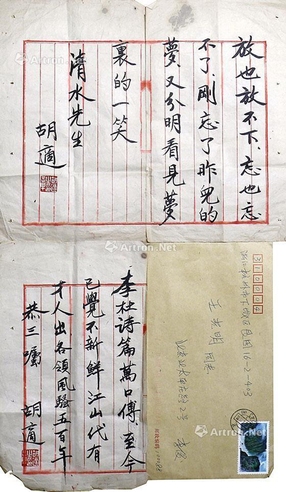 放也放不下、忘也忘
不了、剛忘了昨兒的
夢、又分明看見夢
裏的一笑
清水先生
胡適
李杜詩篇萬口傳、至今
已覺不新鮮江山代有
才人出各領風騷五百年
恭三囑 胡適
16-2-403
同志
Artron.Net